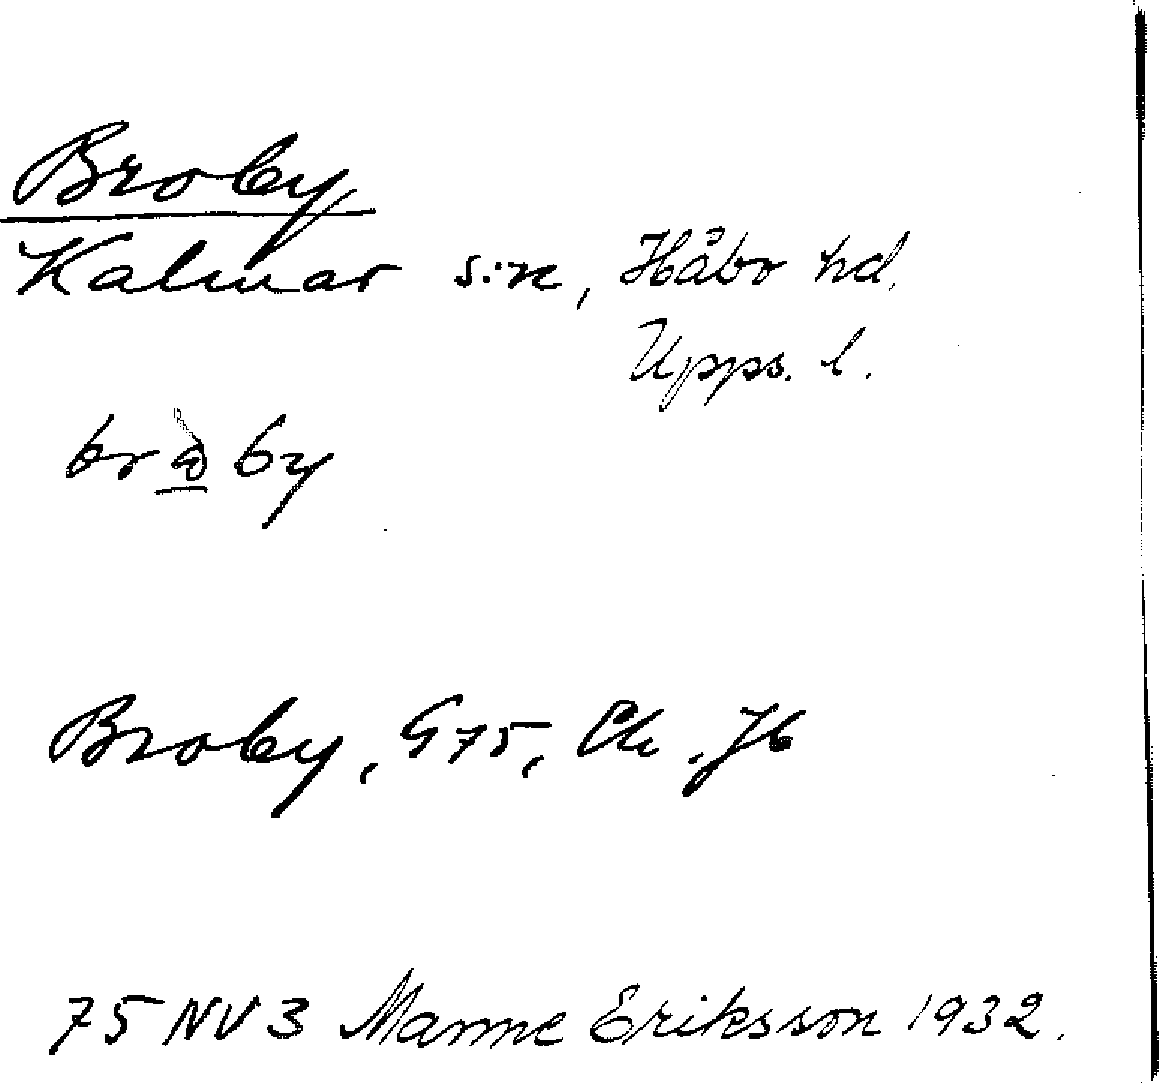 Broby
Kalmar s:n, Håbo hd.
Upps. l.
by
Broby, G75, Ek. Jb
75 NV 3 Manne Eriksson 1932.